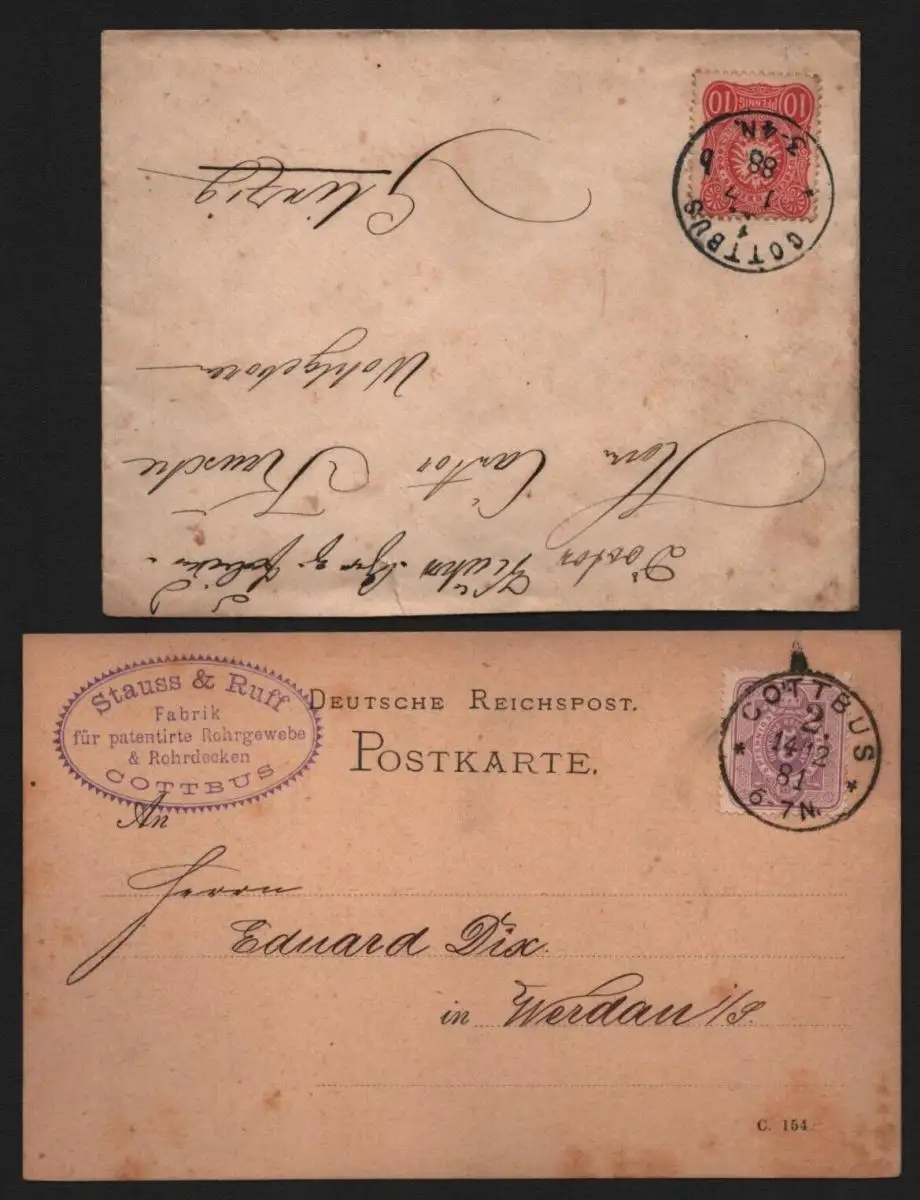 Herrn Cantor
Wohlgeboren
Glinzig
COTTBUS
88
3-4N.
10 PFENNIG 10
Stauss & Ruff
Fabrik
für patentirte Rohrgewebe
& Rohrdecken
COTTBUS
DEUTSCHE REICHSPOST.
POSTKARTE.
COTTBUS
2.
14 12
81
6-7N.
An
Herrn
Eduard Dix
in Werdau i/S.
C. 154